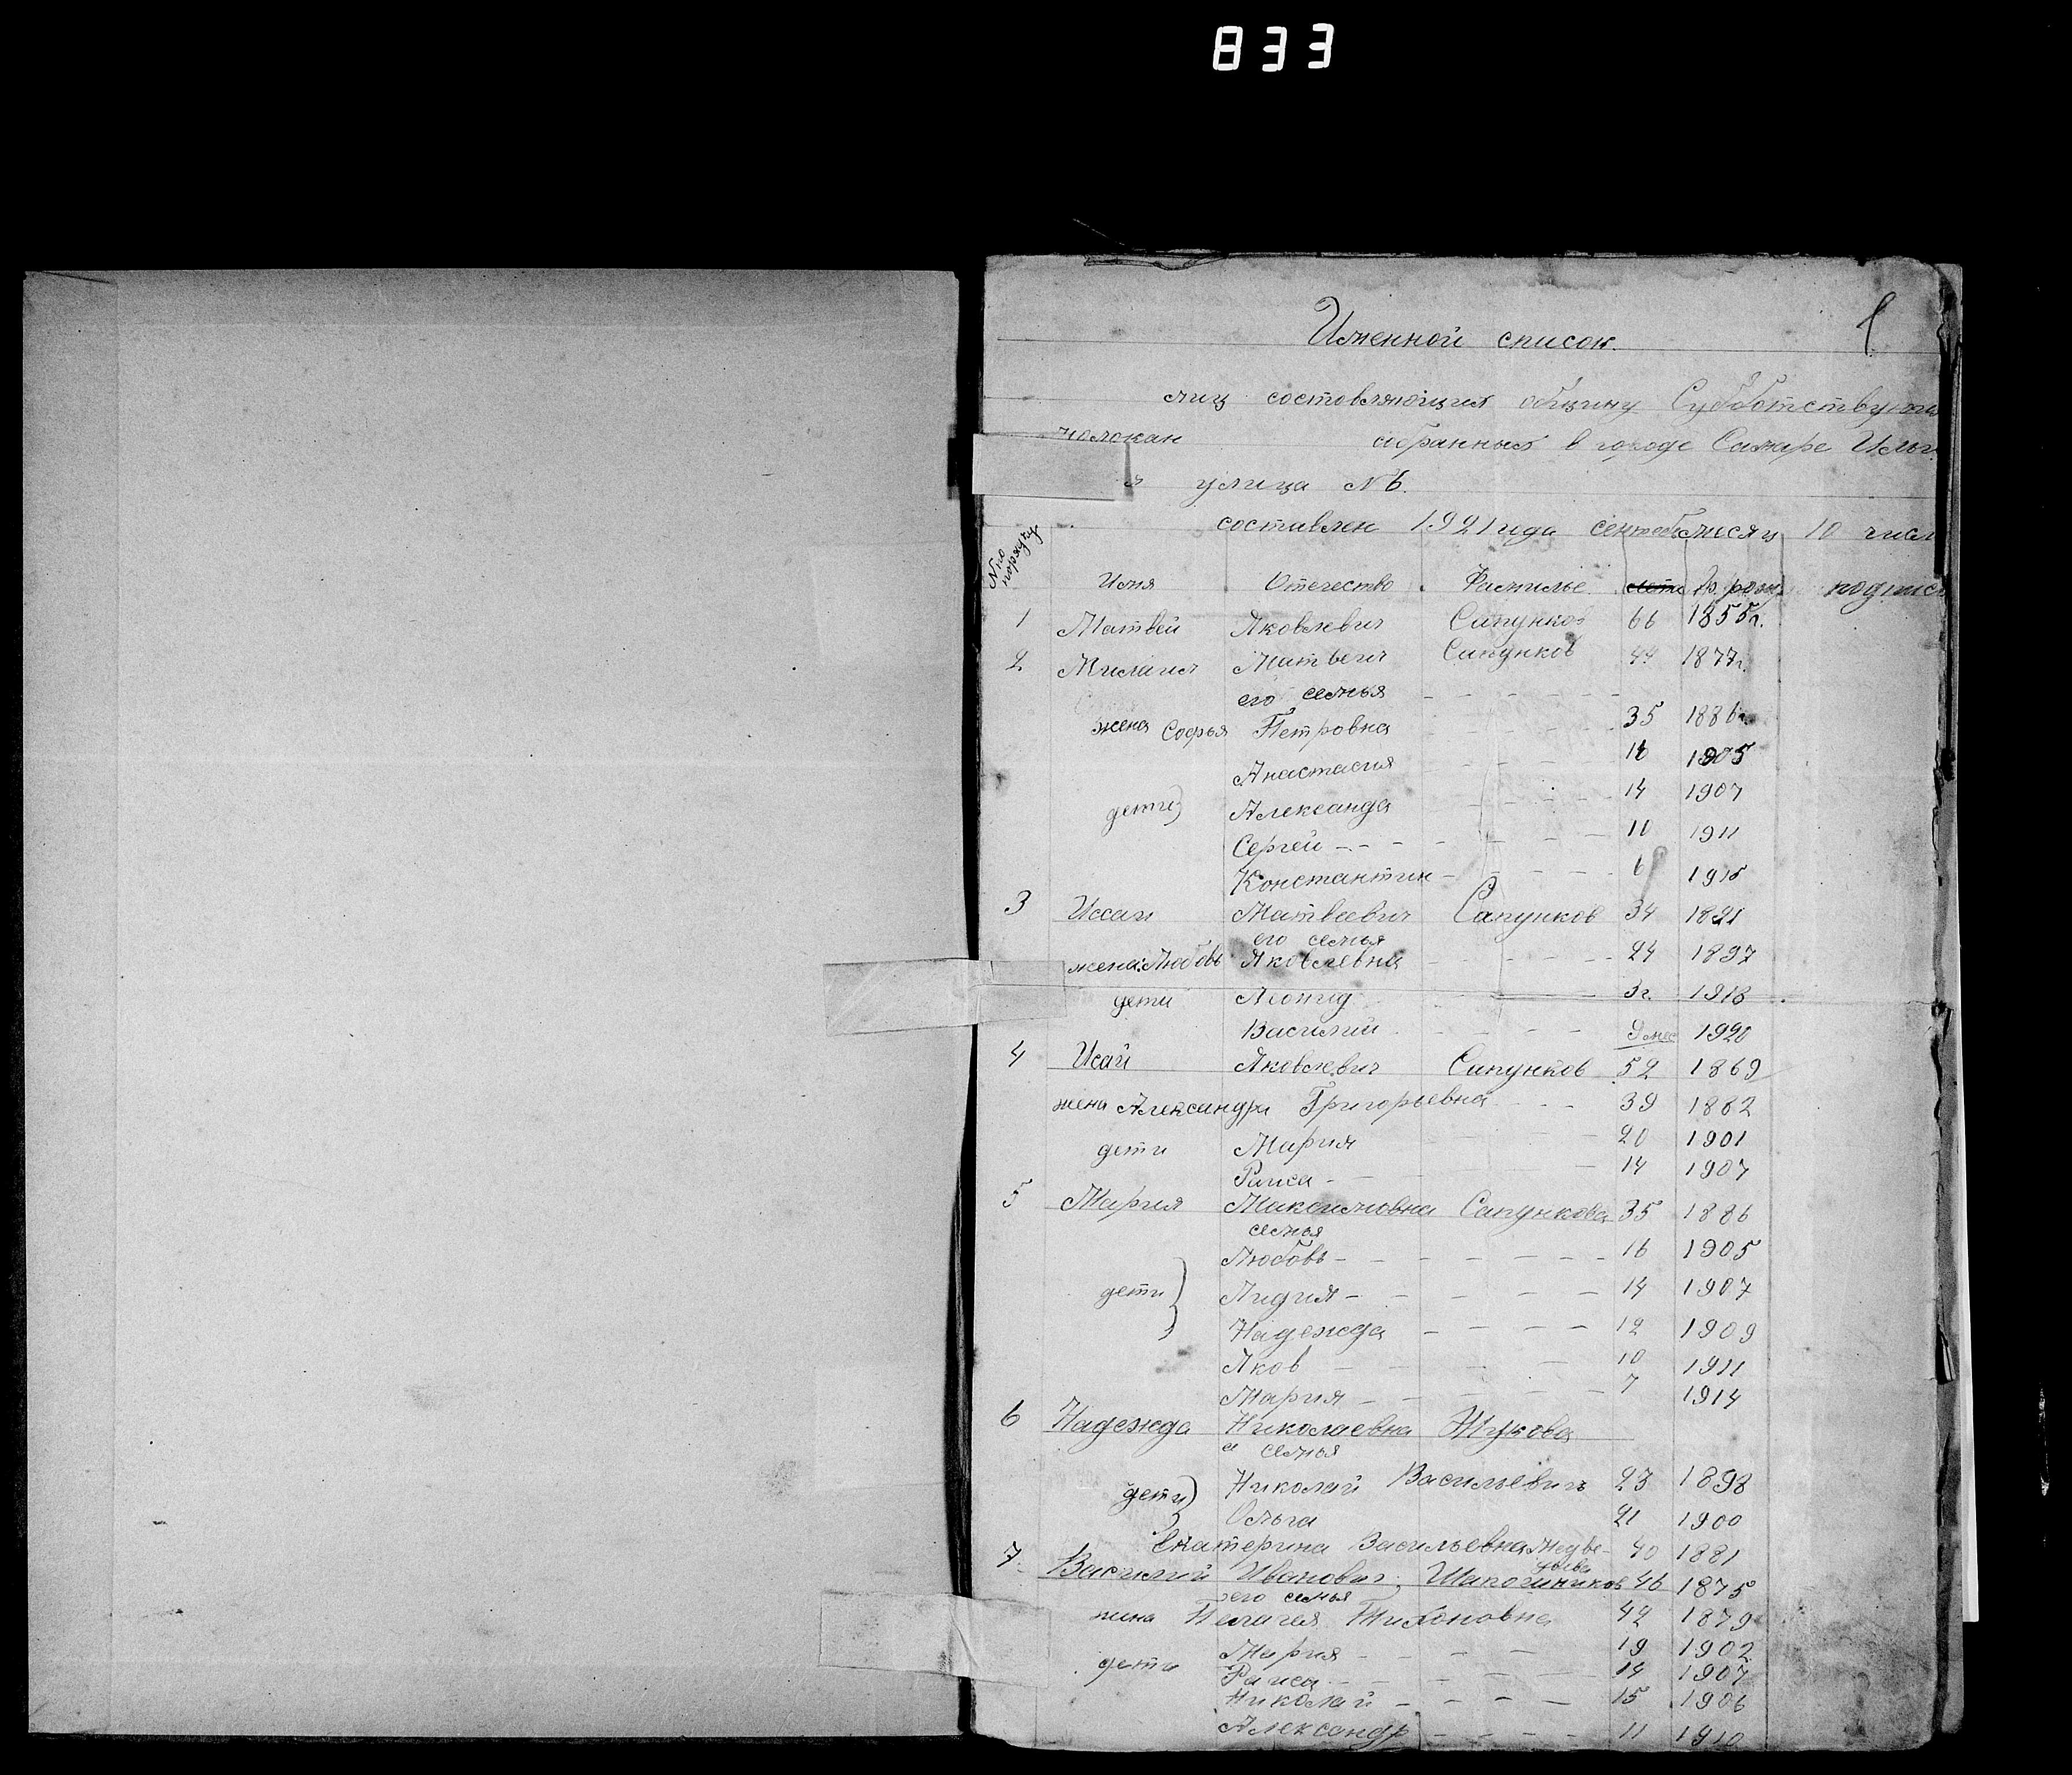 833
1
Именной список.
лиц состовляющих общину Субботствующ
молокан собранных в городе Самаре Ильи
я улица №6.
составлен 1921 года сентебр месяц 10 числ
N по порядку Имя Отечество Фамилье лета Го. рож. подпись
1 Матвей Яковлевич Сапунков 66 1855г.
2 Матвеич Сапунков 44 1877г.
его семья
жена Софья Петровна 35 1886г.
Анастасия 16 1905
дети Александа 14 1907
Сергей 10 1911
Константин 6 1915
3 Иссаи Матвеевич Сапунков 34
его семья
жена Любовь Яковлевна 24 1897
дети Леонид 3г. 1918
Василий 9 мес 1920
4 Исай Яковлевич Сапунков 52 1869
жена Александра Григорьевна 39 1882
дети Мария 20 1901
Раиса 14 1907
5 Мария Максимовна Сапункова 35 1886
семья
Любовь 16 1905
дети Лидия 14 1907
Надежда 12 1909
Яков 10 1911
Мария 7 1914
6 Надежда Николаевна Жукова
ея семья
дети Николай Васильевич 23 1898
Ольга 21 1900
Екатерина Васильевна 40 1881
7 Василий Иванович Шапошников 46 1875
его семья
жена Пелагея Тихоновна 42 1879
дети Мария 19 1902
Раиса 14 1907
Николай 15 1906
Александр 11 1910